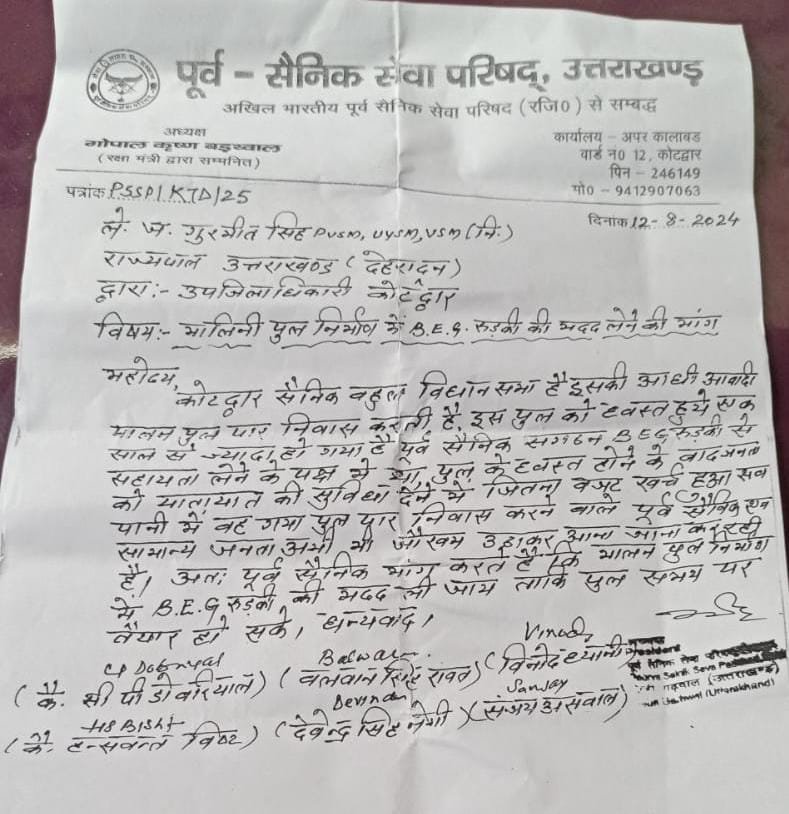 पूर्व - सैनिक सेवा परिषद्, उत्तराखण्ड़
अखिल भारतीय पूर्व सैनिक सेवा परिषद (रजि0) से सम्बद्ध
अध्यक्ष
गोपाल कृष्ण बड़थ्वाल
(रक्षा मंत्री द्वारा सम्मनित)
कार्यालय - अपर कालाबड
वार्ड न0 12, कोटद्वार
पिन - 246149
मो0 - 9412907063
पत्रांक PSSP/KTD/25
दिनांक 12-8-2024
ले. ज. गुरमीत सिंह PVSM, UYSM, VSM (नि.)
राज्यपाल उत्तराखण्ड (देहरादून)
द्वारा:- उपजिलाधिकारी कोटद्वार
विषय:- मालिनी पुल निर्माण में B.E.G. रुड़की की मदद लेने की मांग
महोदय,
कोटद्वार सैनिक बहुल विधान सभा है इसकी आधी आबादी
मालन पुल पार निवास करती है, इस पुल को ध्वस्त हुये एक
साल से ज्यादा हो गया है पूर्व सैनिक संगठन BEG रुड़की से
सहायता लेने के पक्ष में था, पुल के ध्वस्त होने के बाद जनता
को यातायात की सुविधा देने में जितना बजट खर्च हुआ सब
पानी में बह गया पुल पार निवास करने वाले पूर्व सैनिक एवं
सामान्य जनता अभी भी जोखम उठाकर आना जाना कर रही
है, अतः पूर्व सैनिक मांग करते है कि मालन पुल निर्माण
में B.E.G रुड़की की मदद ली जाय ताकि पुल समय पर
तैयार हो सके, धन्यवाद,
CP Dobriyal
Balwan
Vinod
(कै. सी पी डोबरियाल) (बलवान सिंह रावत) (विनोद ध्यानी)
HS Bisht
Devendra
Sanjay
(कै. बिष्ट) (देवेन्द्र सिंह नेगी) (संजय असवाल)
(Uttarakhand)